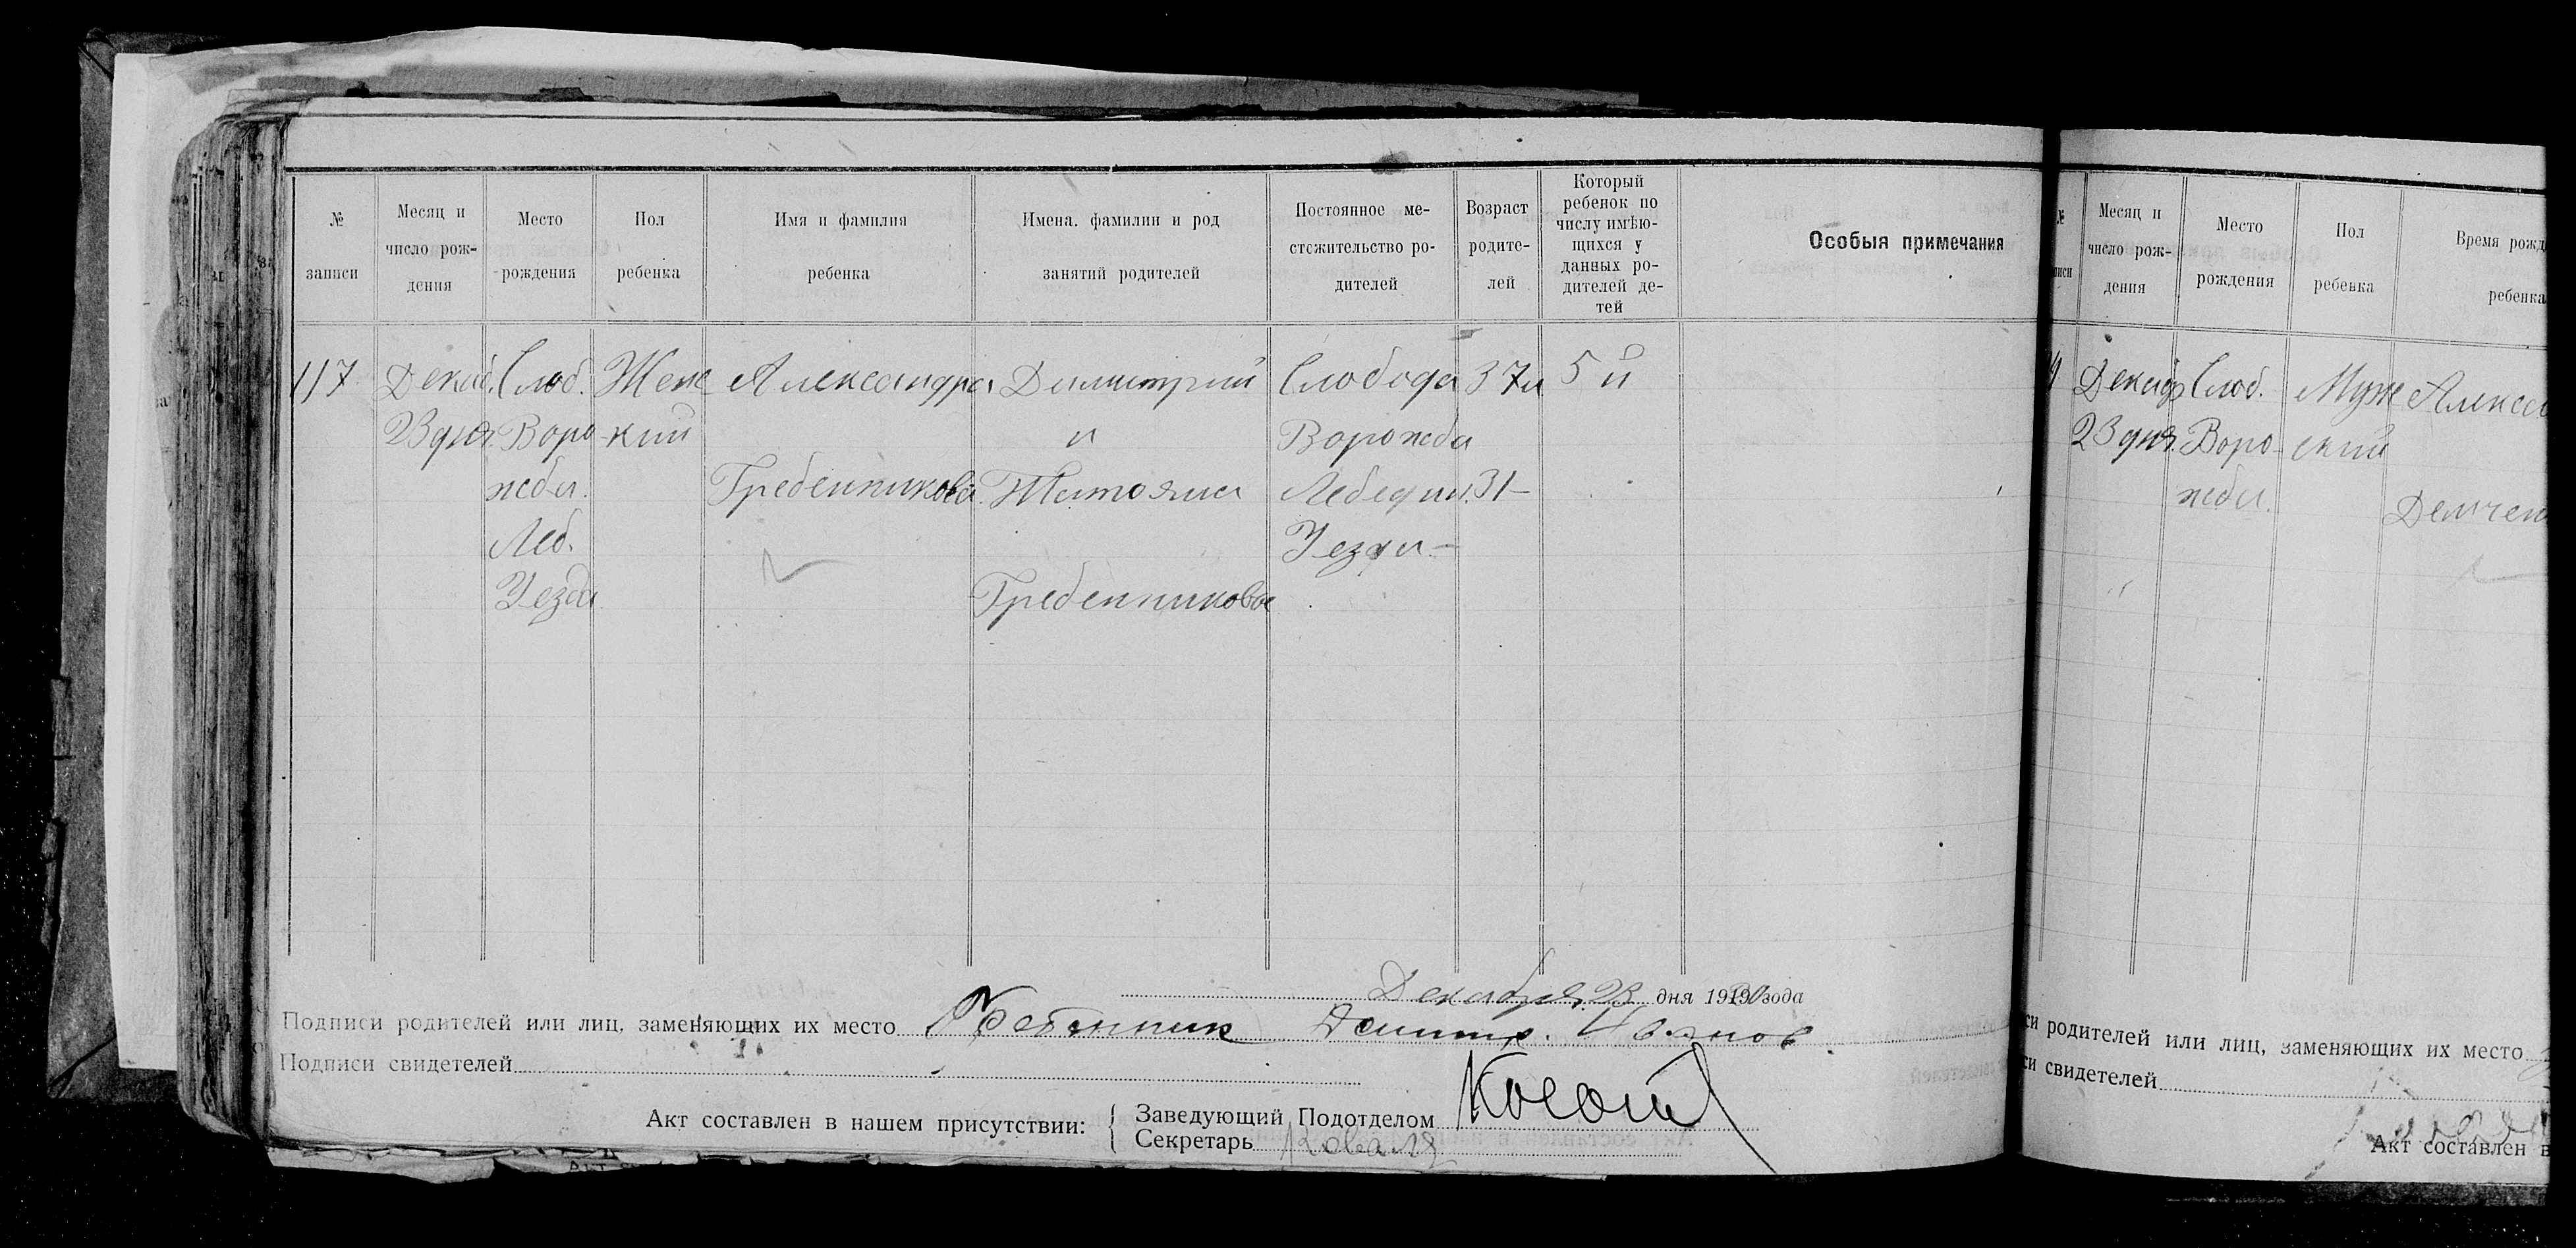 № записи
Месяц и число рож-дения
Место рождения
Пол ребенка
Имя и фамилия ребенка
Имена. фамилии и род занятий родителей
Постоянное ме-стожительство ро-дителей
Возраст родите-лей
Который ребенок по числу имѣю-щихся у данных ро-дителей де-тей
Особыя примечания
117
Декаб.
23 дня.
Слоб.
Воро
жба.
Леб.
Уезда
Женс
кий
Александра
Гребенникова
Димитрий
и
Гребенниковы
Слобода
Ворожба
Лебедин.
Уезда
37
31
5й
Декабря 23 дня 1920 года
Подписи родителей или лиц, заменяющих их место
Подписи свидетелей
Акт составлен в нашем присутствии:
Заведующий Подотделом
Секретарь
Месяц и число рож-дения
Место рождения
Пол ребенка
Время рожд
ребенка
Декабр
23 дня.
Слоб.
Воро-
жба.
Муж
ский
Алекса
Демчен
си родителей или лиц, заменяющих их место
си свидетелей
Акт составлен в